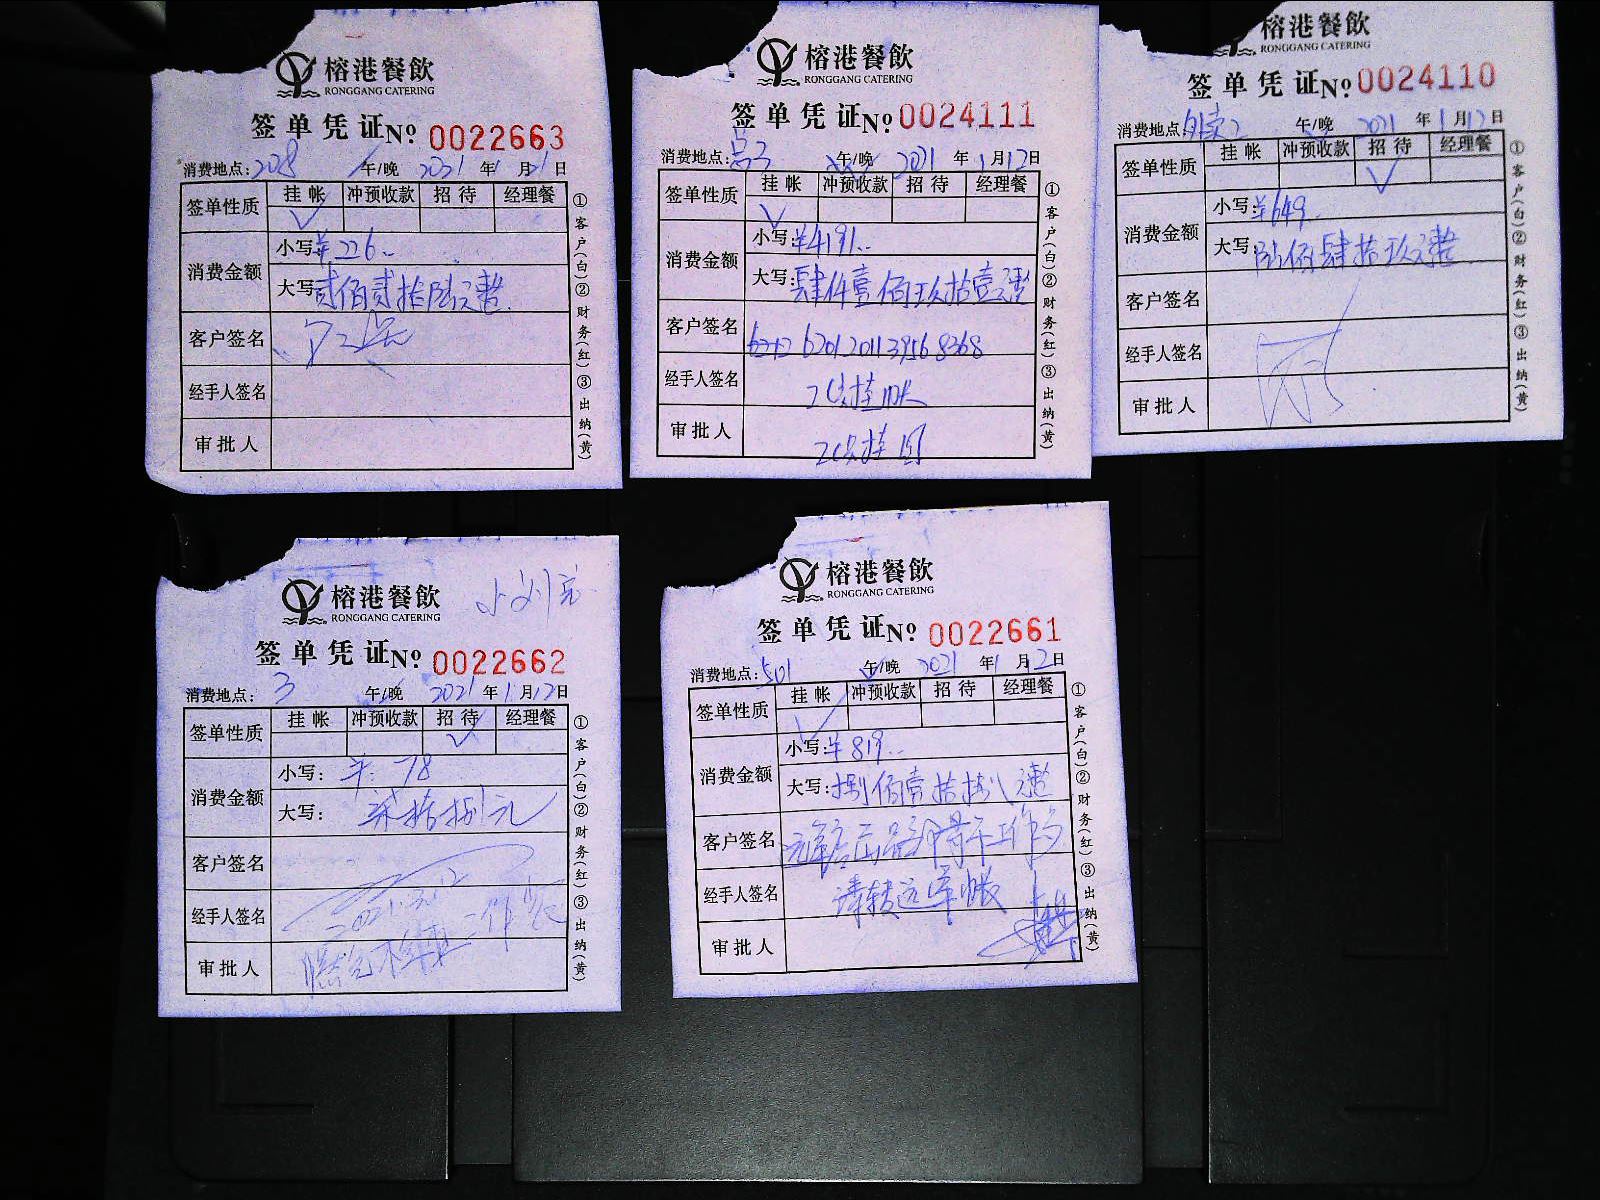 榕港餐飲
RONGGANG CATERING
签单凭证 № 0022663
消费地点: 208 午/晚 2021年1月 日
签单性质 挂帐 冲预收款 招待 经理餐
✓
消费金额 小写: ¥226.
大写: 贰佰贰拾陆元整.
客户签名
经手人签名
审批人
①客户(白)②财务(红)③出纳(黄)
榕港餐飲
RONGGANG CATERING
签单凭证 № 0024111
消费地点: 午/晚 2021年1月12日
签单性质 挂帐 冲预收款 招待 经理餐
✓
消费金额 小写: ¥4191..
大写: 肆仟壹佰玖拾壹元整
客户签名 6201 2011 3956 8368
经手人签名
审批人
①客户(白)②财务(红)③出纳(黄)
榕港餐飲
RONGGANG CATERING
签单凭证 № 0024110
消费地点: 外卖2 午/晚 2021年1月12日
签单性质 挂帐 冲预收款 招待 经理餐
✓
消费金额 小写: ¥649.
大写: 陆佰肆拾玖元整.
客户签名
经手人签名
审批人
①客户(白)②财务(红)③出纳(黄)
榕港餐飲
RONGGANG CATERING
签单凭证 № 0022662
消费地点: 3 午/晚 2021年1月12日
签单性质 挂帐 冲预收款 招待 经理餐
✓
消费金额 小写: ¥: 78
大写: 柒拾捌元
客户签名
经手人签名
审批人
①客户(白)②财务(红)③出纳(黄)
榕港餐飲
RONGGANG CATERING
签单凭证 № 0022661
消费地点: 501 午/晚 2021年1月12日
签单性质 挂帐 冲预收款 招待 经理餐
✓
消费金额 小写: ¥819..
大写: 捌佰壹拾 元整
客户签名
经手人签名 请转 帐
审批人
①客户(白)②财务(红)③出纳(黄)